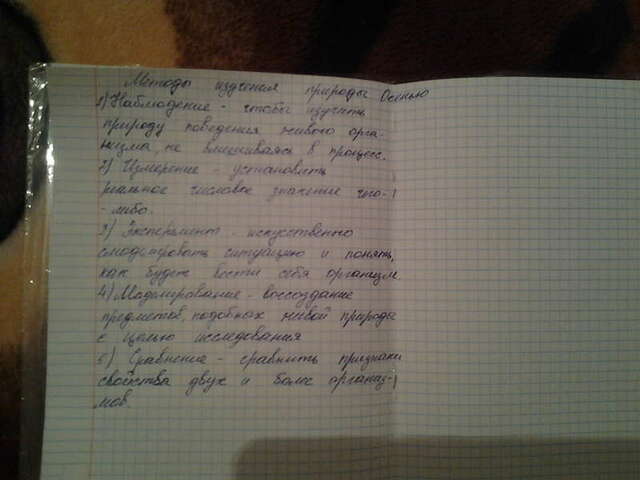 Методы изучения природы
1) Наблюдение - чтобы изучить
природу поведения живого орга-
низма, не вмешиваясь в процесс.
2) Измерение - установить
реальное числовое значение чего-
-либо.
3) Эксперимент - искуственно
смоделировать ситуацию и понять,
как будет вести себя организм
4) Моделирование - воссоздание
предметов, подобных живой природе
с целью исследования
5) Сравнение - сравнить признаки
свойства двух и более организ-
мов